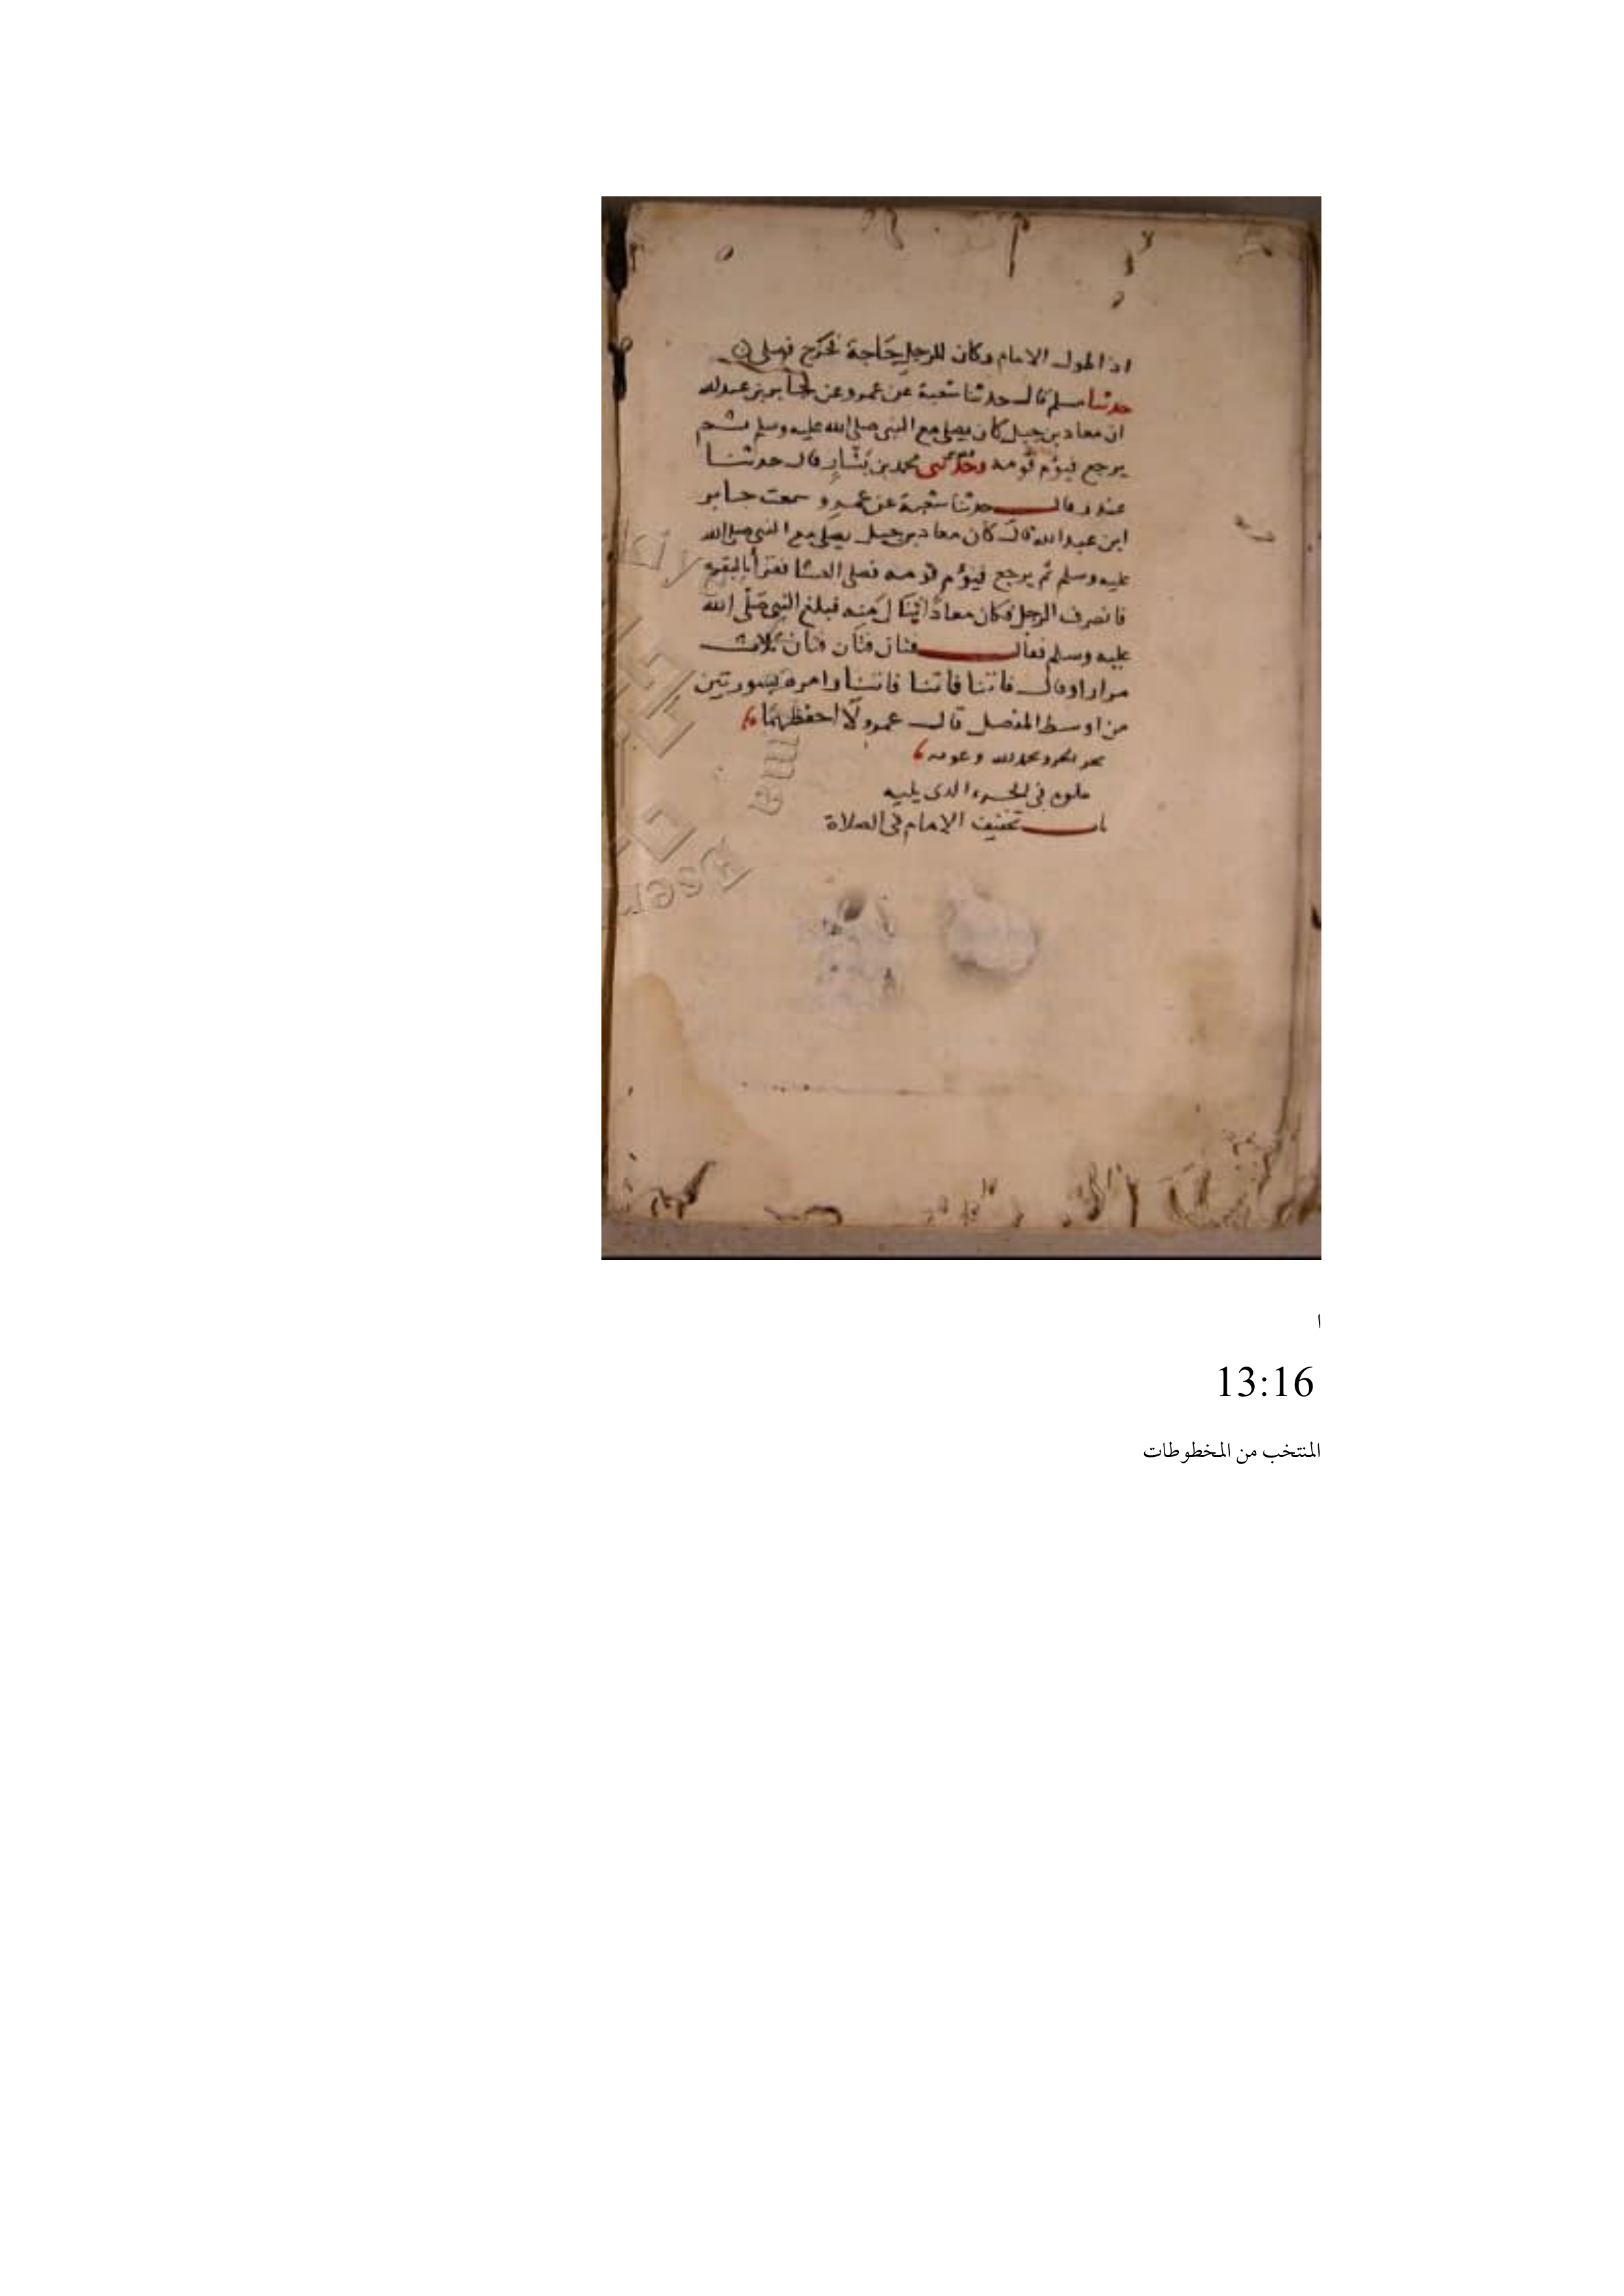 اذا طول الامام وكان للرجل حاجة فخرج فصلى
حدثنا مسلم قال حدثنا شعبة عن عمرو عن جابر بن عبد الله
ان معاذ بن جبل كان يصلي مع النبي صلى الله عليه وسلم ثم
يرجع فيؤم قومه وحدثني محمد بن بشار قال حدثنا
غندر قال حدثنا شعبة عن عمرو سمعت جابر
ابن عبد الله قال كان معاذ بن جبل يصلي مع النبي صلى الله
عليه وسلم ثم يرجع فيؤم قومه فصلى العشا فقرأ بالبقرة
فانصرف الرجل فكان معاذ ينال منه فبلغ النبي صلى الله
عليه وسلم فقال فتان فتان فتان ثلاث
مرار او قال فاتنا فاتنا فاتنا وامره بسورتين
من اوسط المفصل قال عمرو لا احفظهما
بحمد الله وعونه
يتلوه في الجزء الذي يليه
باب تخفيف الامام في الصلاة
ا
13:16
المنتخب من المخطوطات